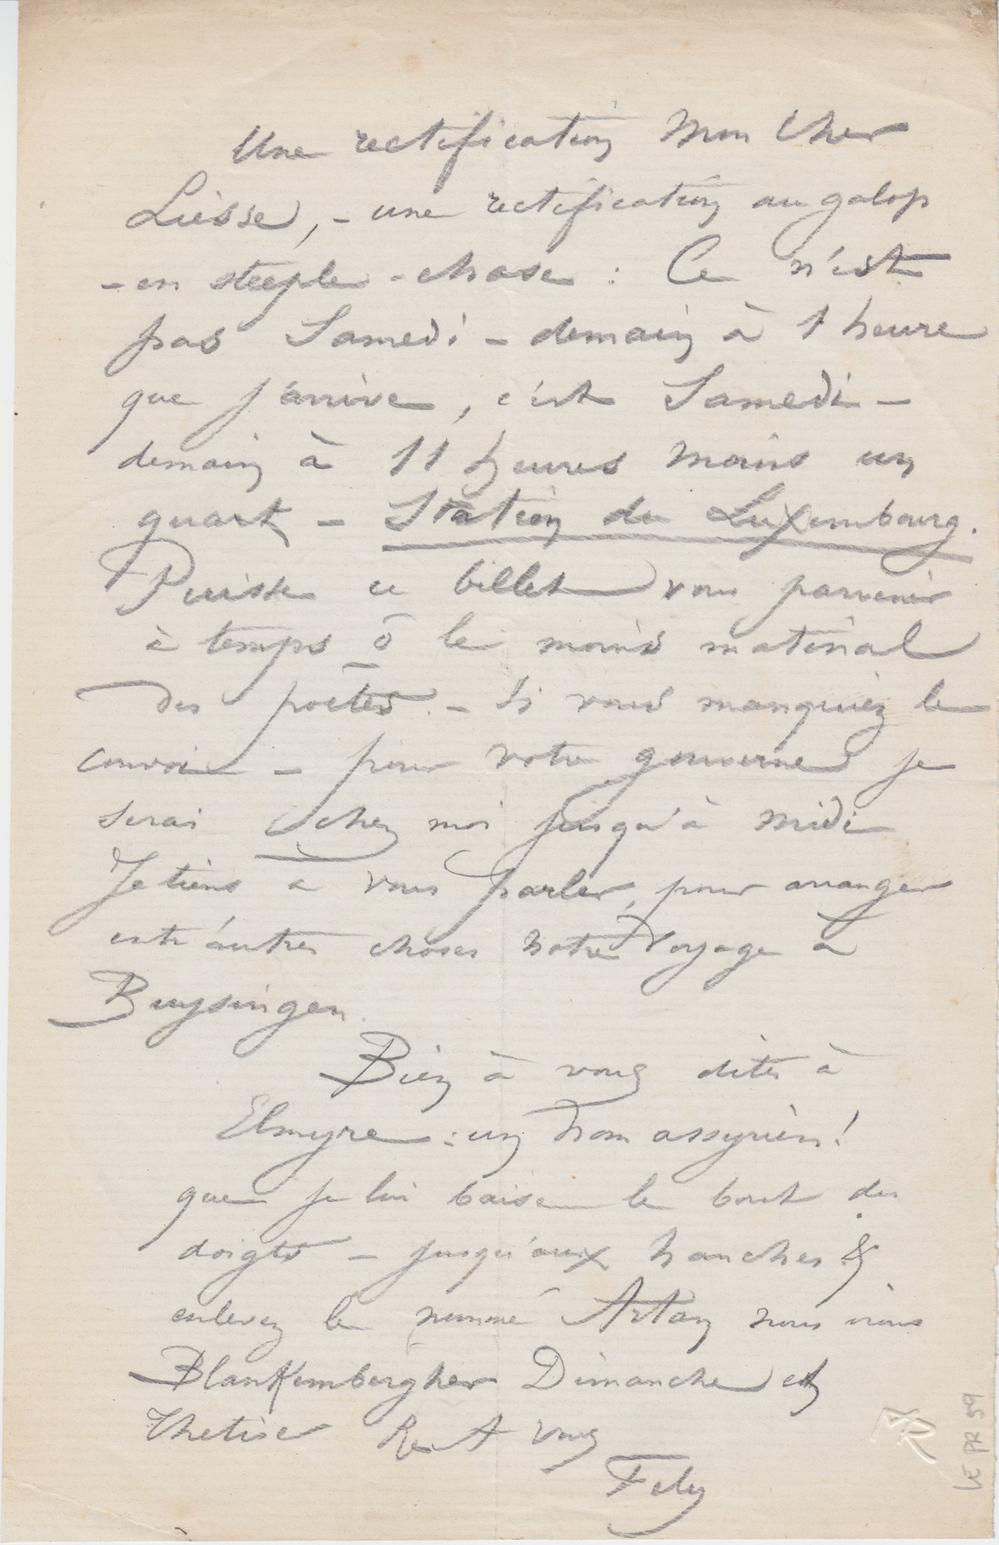 Une rectification Mon Cher
Liesse, – une rectification au galop
– en steeple-chase : Ce n'est
pas Samedi – demain à 1 heure
que j'arrive, c'est Samedi –
demain à 11 heures moins un
quart – Station du Luxembourg.
Puisse ce billet vous parvenir
à temps ô le moins matinal
des poëtes. – Si vous manquiez le
convoi – pour votre gouverne je
serai chez moi jusqu'à midi
Je tiens à vous parler, pour arranger
entr'autres choses notre voyage à
Buysingen.
Bien à vous dites à
Elmyre : un nom assyrien!
que je lui baise le bout des
doigts – jusqu'aux hanches &
enlevez le nommé Artan nous irons
Blankembergher Dimanche et
Thetiser R A vous
Fely
LE PR 59